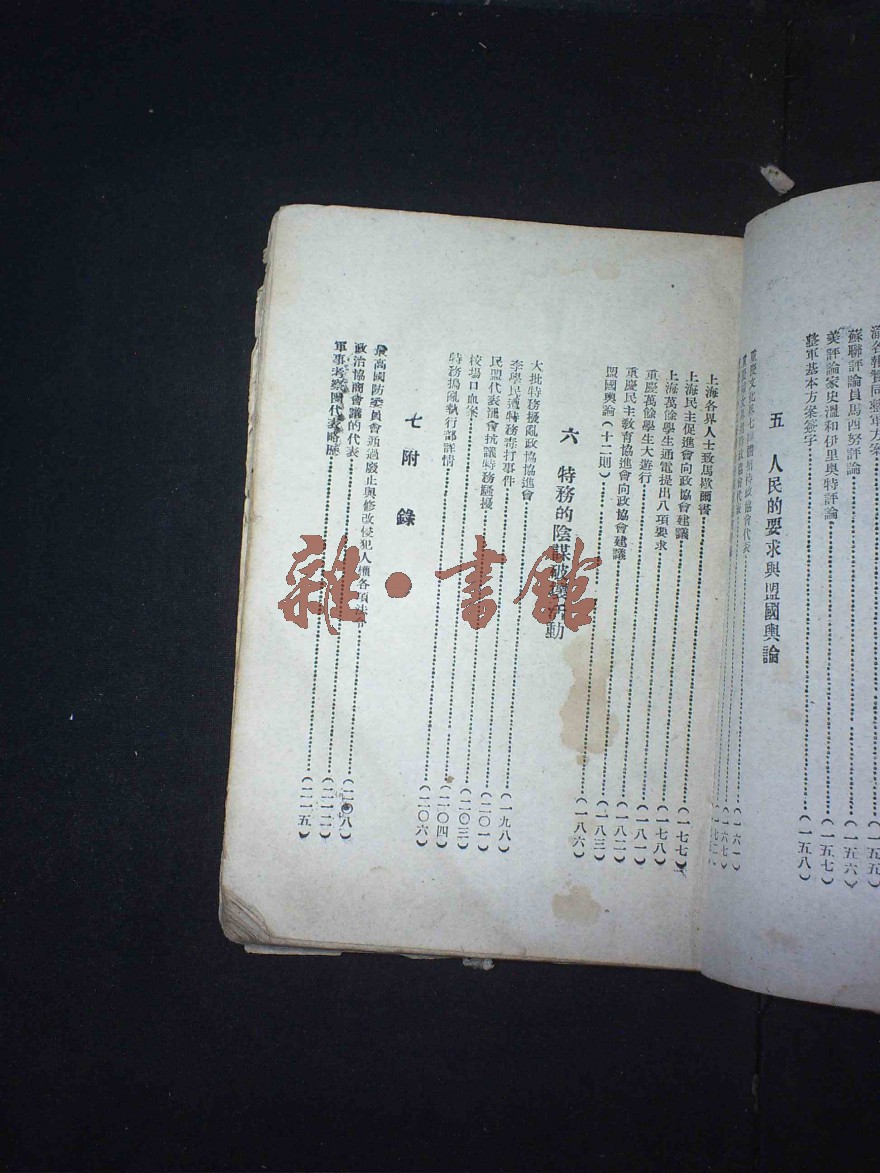 各報贊同整軍方案
（一五五）
蘇聯評論員馬西努評論
（一五六）
美評論家史溫和伊里奧特評論
（一五七）
整軍基本方案簽字
（一五八）
五 人民的要求與盟國輿論
重慶文化界七
招待政協會代表
（一六一）
（一六七）
上海各界人士致馬歇爾書
（一七七）
上海民主促進會向政協會建議
（一七八）
上海萬餘學生通電提出八項要求
（一八一）
重慶萬餘學生大遊行
（一八二）
重慶民主教育協進會向政協會建議
（一八三）
盟國輿論（十二則）
（一八六）
六 特務的陰謀破壞活動
大批特務擾亂政協協進會
（一九八）
李學民遭特務毒打事件
（二〇一）
民盟代表滬會抗議特務騷擾
（二〇三）
校場口血案
（二〇四）
特務搗亂執行部詳情
（二〇六）
七 附錄
最高國防委員會通過廢止與修改侵犯人權各項法令
（二〇八）
政治協商會議的代表
（二一二）
軍事考察團代表略歷
（二一五）
雜·書館